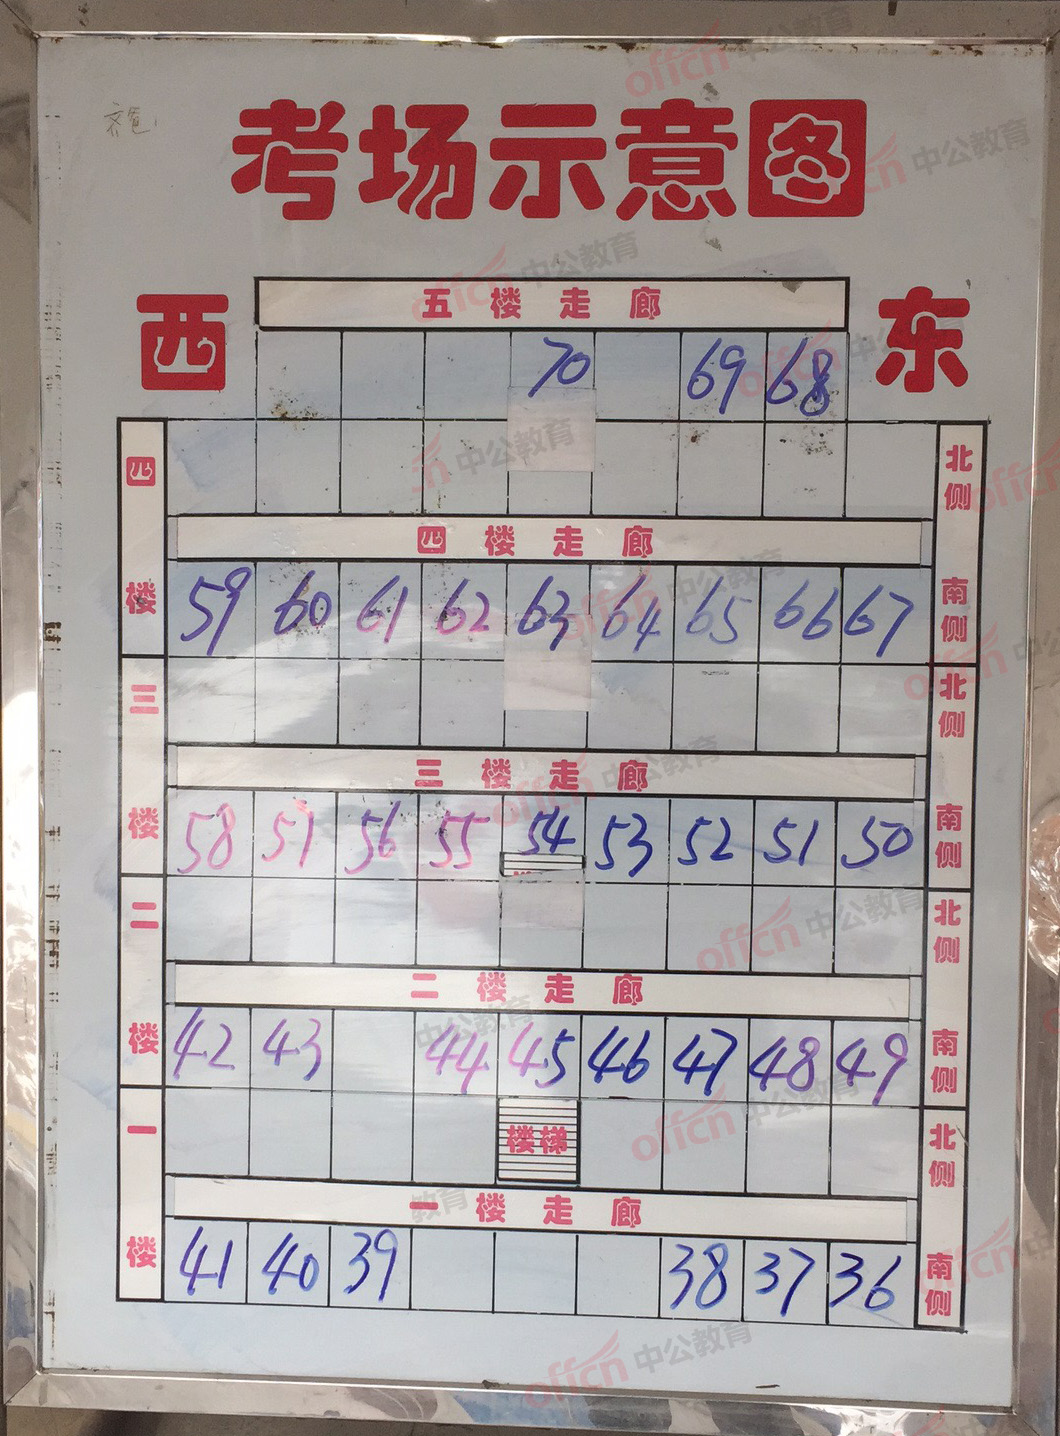 考场示意图
西 东
五楼走廊
70 69 68
北侧
四楼
四楼走廊
59 60 61 62 63 64 65 66 67
南侧
北侧
三楼
三楼走廊
58 57 56 55 54 53 52 51 50
南侧
北侧
二楼
二楼走廊
42 43 44 45 46 47 48 49
南侧
楼梯
北侧
一楼
一楼走廊
41 40 39 38 37 36
南侧
offcn 中公教育